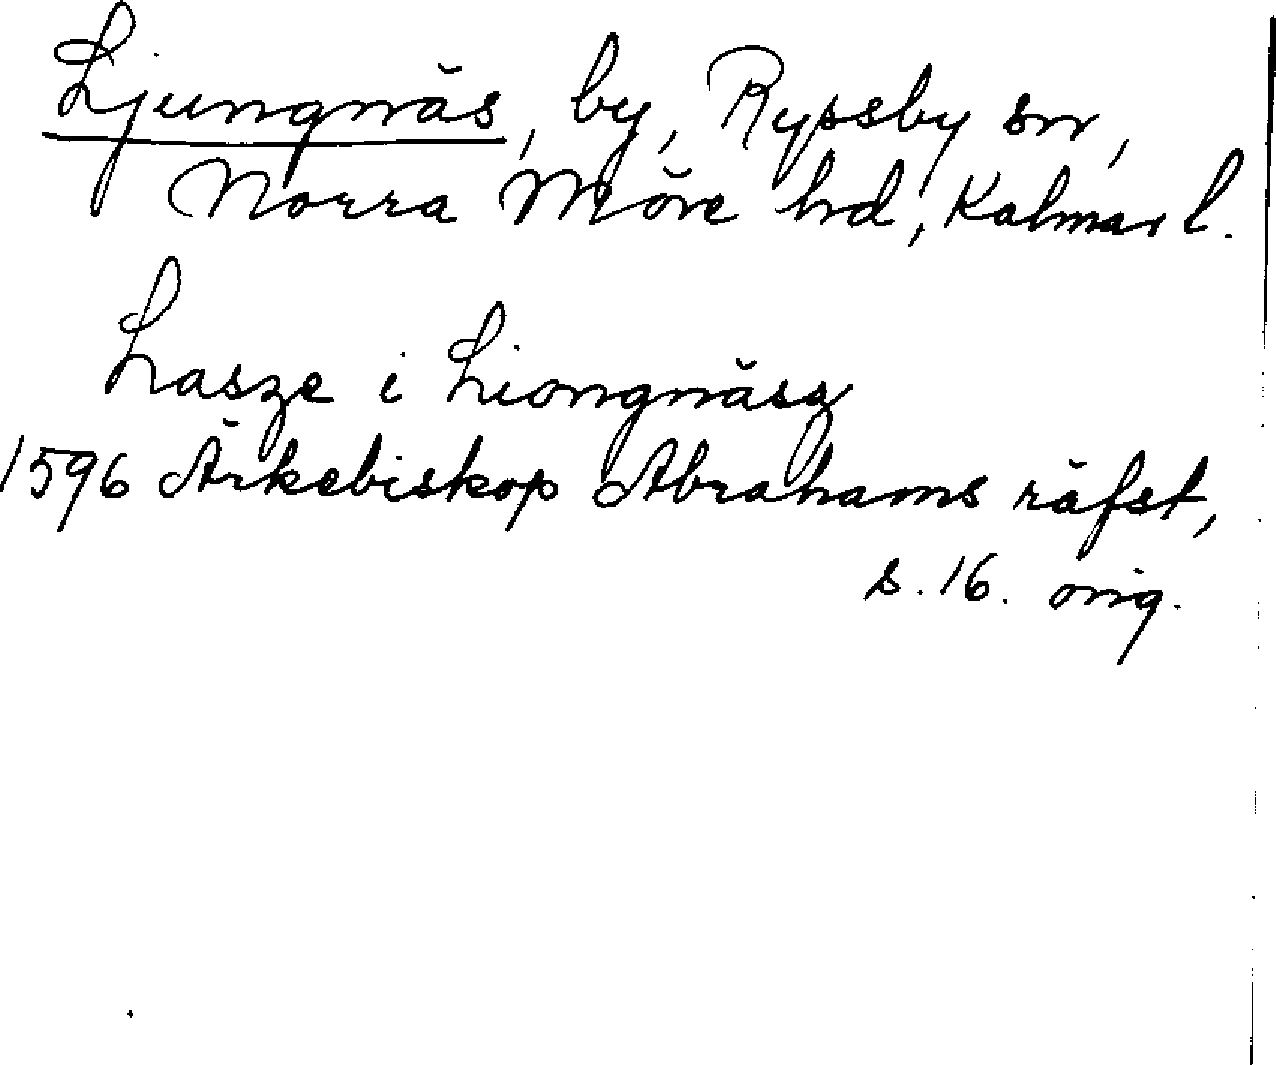 Ljungnäs, by, Ryssby sn,
Norra Möre hd, Kalmar l.
Lasze i Liongnäsz
1596 Ärkebiskop Abrahams räfst,
s. 16. orig.